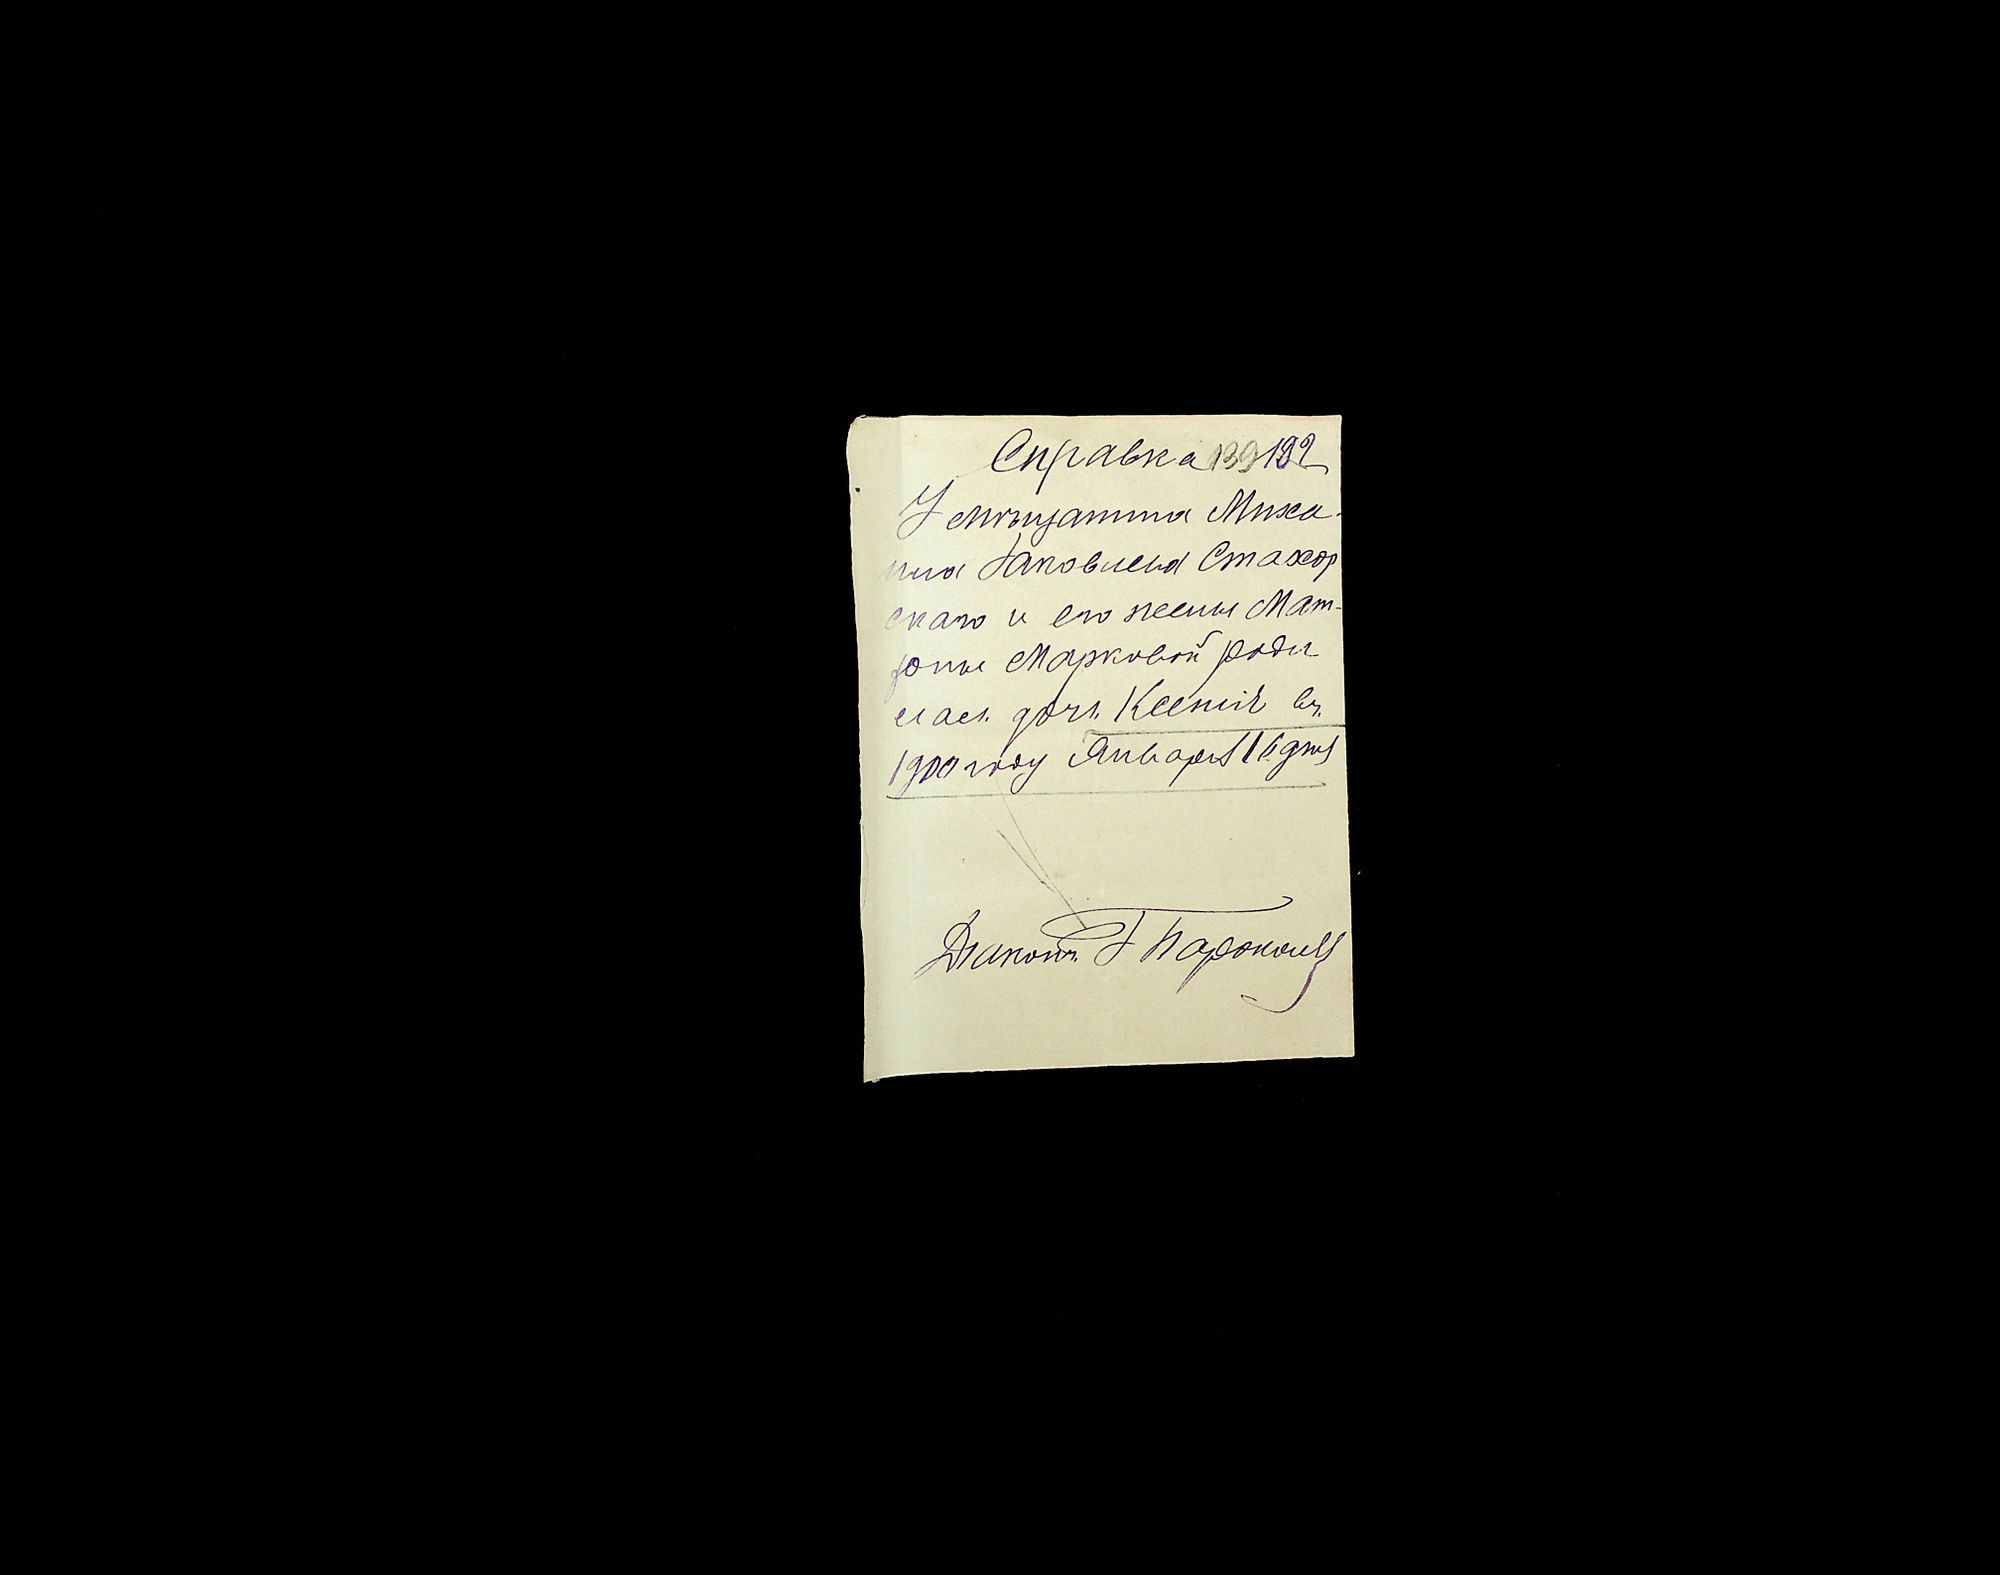 Справка 139 192
У мѣщанина Миха-
ила Яковлева Стахор
скаго и его жены Мат-
роны Марковой роди
лась дочь Ксенія въ
1900 году Января 16 дня
Діаконъ